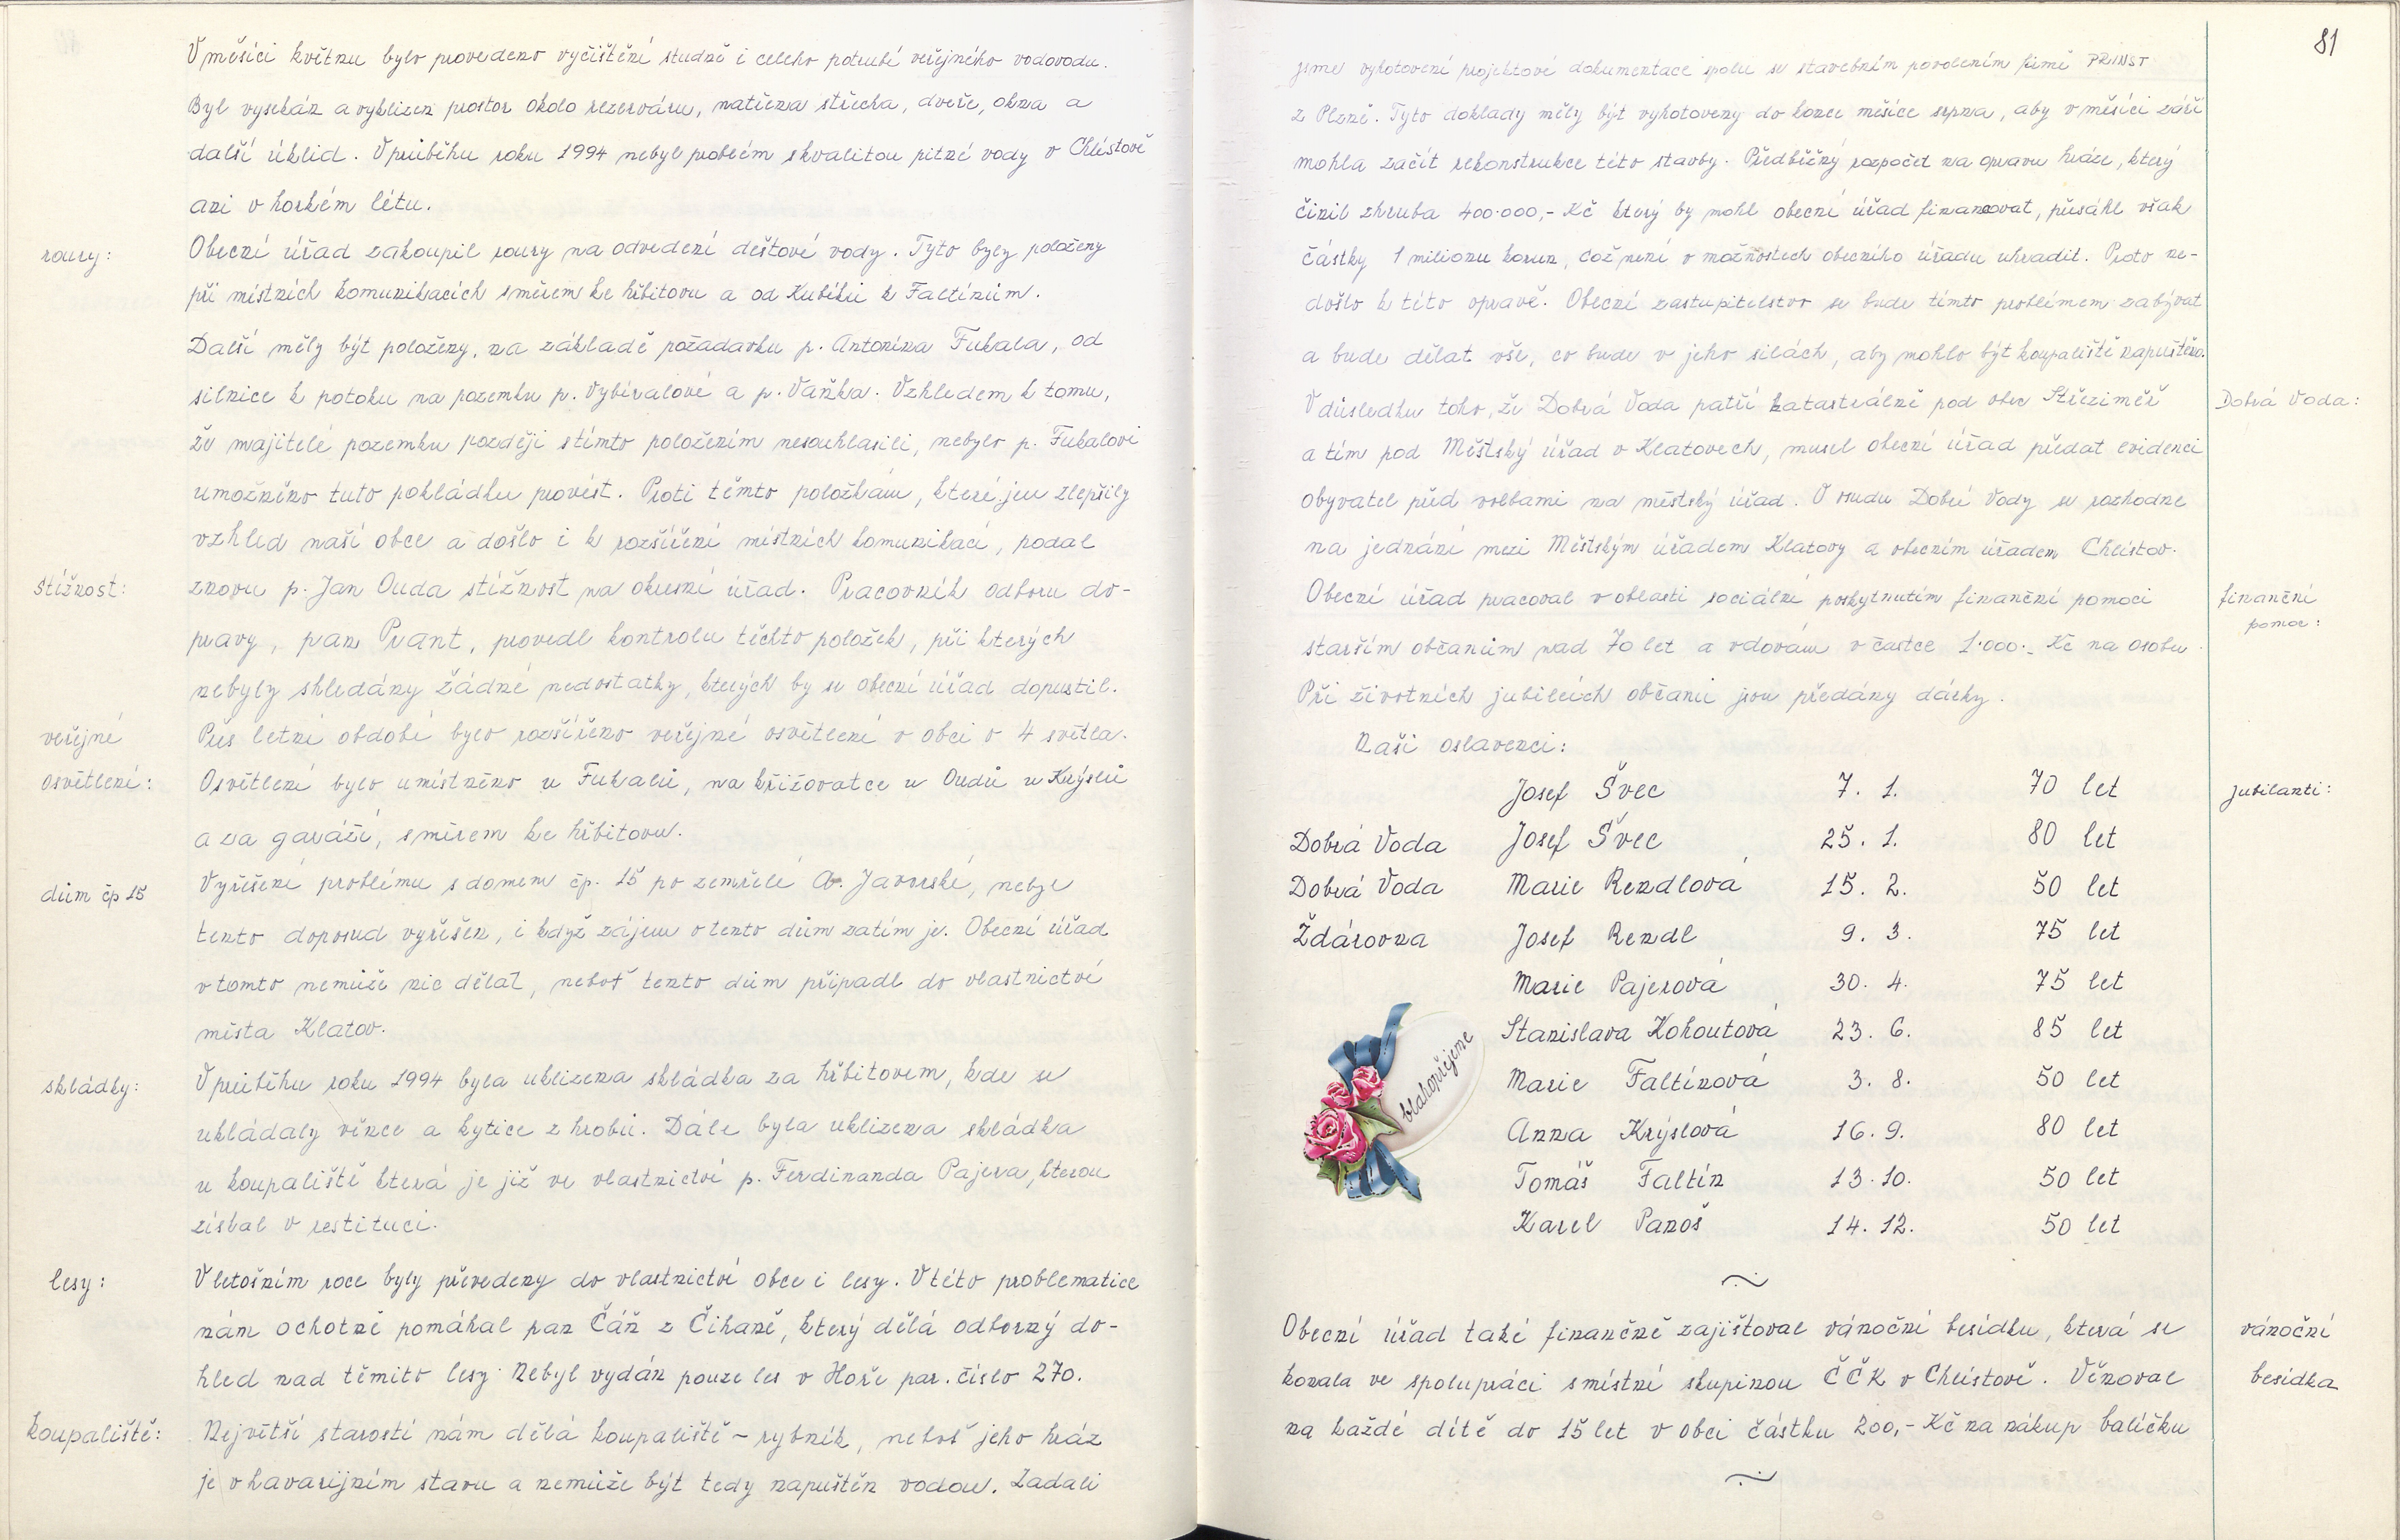 V měsíci květnu bylo provedeno vyčištění studně i celého potrubí veřejného vodovodu.
Byl vysekán a vyklizen prostor okolo rezerváru, natřena střecha, dveře, okna a
další úklid. V průběhu roku 1994 nebyl problém s kvalitou pitné vody v Chlístově
ani v horkém létu.
roury:
Obecní úřad zakoupil roury na odvedení deštové vody. Tyto byly položeny
při místních komunikacích směrem ke hřbitovu a od Kubíků k Faltínům.
Další měly být položeny, na základě požadavku p. Antonína Fukala, od
silnice k potoku na pozemku p. Vybíralové a p. Vaňka. Vzhledem k tomu,
že majitelé pozemku později s tímto položením nesouhlasili, nebylo p. Fukalovi
umožněno tuto pokládku provést. Proti těmto položkám, které jen zlepšily
vzhled naší obce a došlo i k rozšíření místních komunikací, podal
stížnost:
znovu p. Jan Ouda stížnost na okresní úřad. Pracovník odboru do-
pravy, pan Prant, provedl kontrolu těchto položek, při kterých
nebyly shledány žádné nedostatky, kterých by se obecní úřad dopustil.
veřejné
osvětlení:
Přes letní období bylo rozšířeno veřejné osvětlení v obci o 4 světla.
Osvětlení bylo umístněno u Fukalů, na křižovatce u Oudů u Krýslů
a za garáží, směrem ke hřbitovu.
dům čp 15
Vyřešení problému s domem čp. 15 po zemřelé A. Javorské, nebyl
tento doposud vyřešen, i když zájem o tento dům zatím je. Obecní úřad
v tomto nemůže nic dělat, neboť tento dům připadl do vlastnictví
města Klatov.
skládky:
V průběhu roku 1994 byla uklizena skládka za hřbitovem, kde se
ukládaly věnce a kytice z hrobů. Dále byla uklizena skládka
u koupaliště která je již ve vlastnictví p. Ferdinanda Pajera, kterou
získal v restituci.
lesy:
V letošním roce byly převedeny do vlastnictví obce i lesy. V této problematice
nám ochotně pomáhal pan Čáň z Čihaně, který dělá odborný do-
hled nad těmito lesy. Nebyl vydán pouze les v Hoře par. číslo 270.
koupaliště:
Největší starosti nám dělá koupaliště - rybník, neboť jeho hráz
je v havarijním stavu a nemůže být tedy napuštěn vodou. Zadali
81
jsme vyhotovení projektové dokumentace spolu se stavebním povolením firmě PRINST
z Plzně. Tyto doklady měly být vyhotoveny do konce měsíce srpna, aby v měsíci září
mohla začít rekonstrukce této stavby. Předběžný rozpočet na opravu hráze, který
činil zhruba 400.000,- Kč který by mohl obecní úřad financovat, přesáhl však
částky 1 milionu korun, což není v možnostech obecního úřadu uhradit. Proto ne-
došlo k této opravě. Obecní zastupitelstvo se bude tímto problémem zabývat
a bude dělat vše, co bude v jeho silách, aby mohlo být koupaliště napuštěno.
Dobrá Voda:
V důsledku toho, že Dobrá Voda patří katastrálně pod obec Střeziměř
a tím pod Městský úřad v Klatovech, musel obecní úřad předat evidenci
obyvatel před volbami na městský úřad. O osudu Dobré Vody se rozhodne
na jednání mezi Městským úřadem Klatovy a obecním úřadem Chlístov.
finanční
pomoc:
Obecní úřad pracoval v oblasti sociální poskytnutím finanční pomoci
starším občanům nad 70 let a vdovám v častce 1.000.- Kč na osobu.
Při životních jubileích občanů jsou předány dárky.
Naši oslavenci:
jubilanti:
Josef Švec 7. 1. 70 let
Dobrá Voda Josef Švec 25. 1. 80 let
Dobrá Voda Marie Rendlová 15. 2. 50 let
Ždárovna Josef Rendl 9. 3. 75 let
Marie Pajerová 30. 4. 75 let
Stanislava Kohoutová 23. 6. 85 let
Marie Faltínová 3. 8. 50 let
Anna Krýslová 16. 9. 80 let
Tomáš Faltín 13. 10. 50 let
Karel Panoš 14. 12. 50 let
blahopřejeme
vánoční
besídka
Obecní úřad také finančně zajišťoval vánoční besídku, která se
konala ve spolupráci s místní skupinou ČČK v Chlístově. Věnoval
na každé dítě do 15 let v obci částku 200,- Kč na nákup balíčku